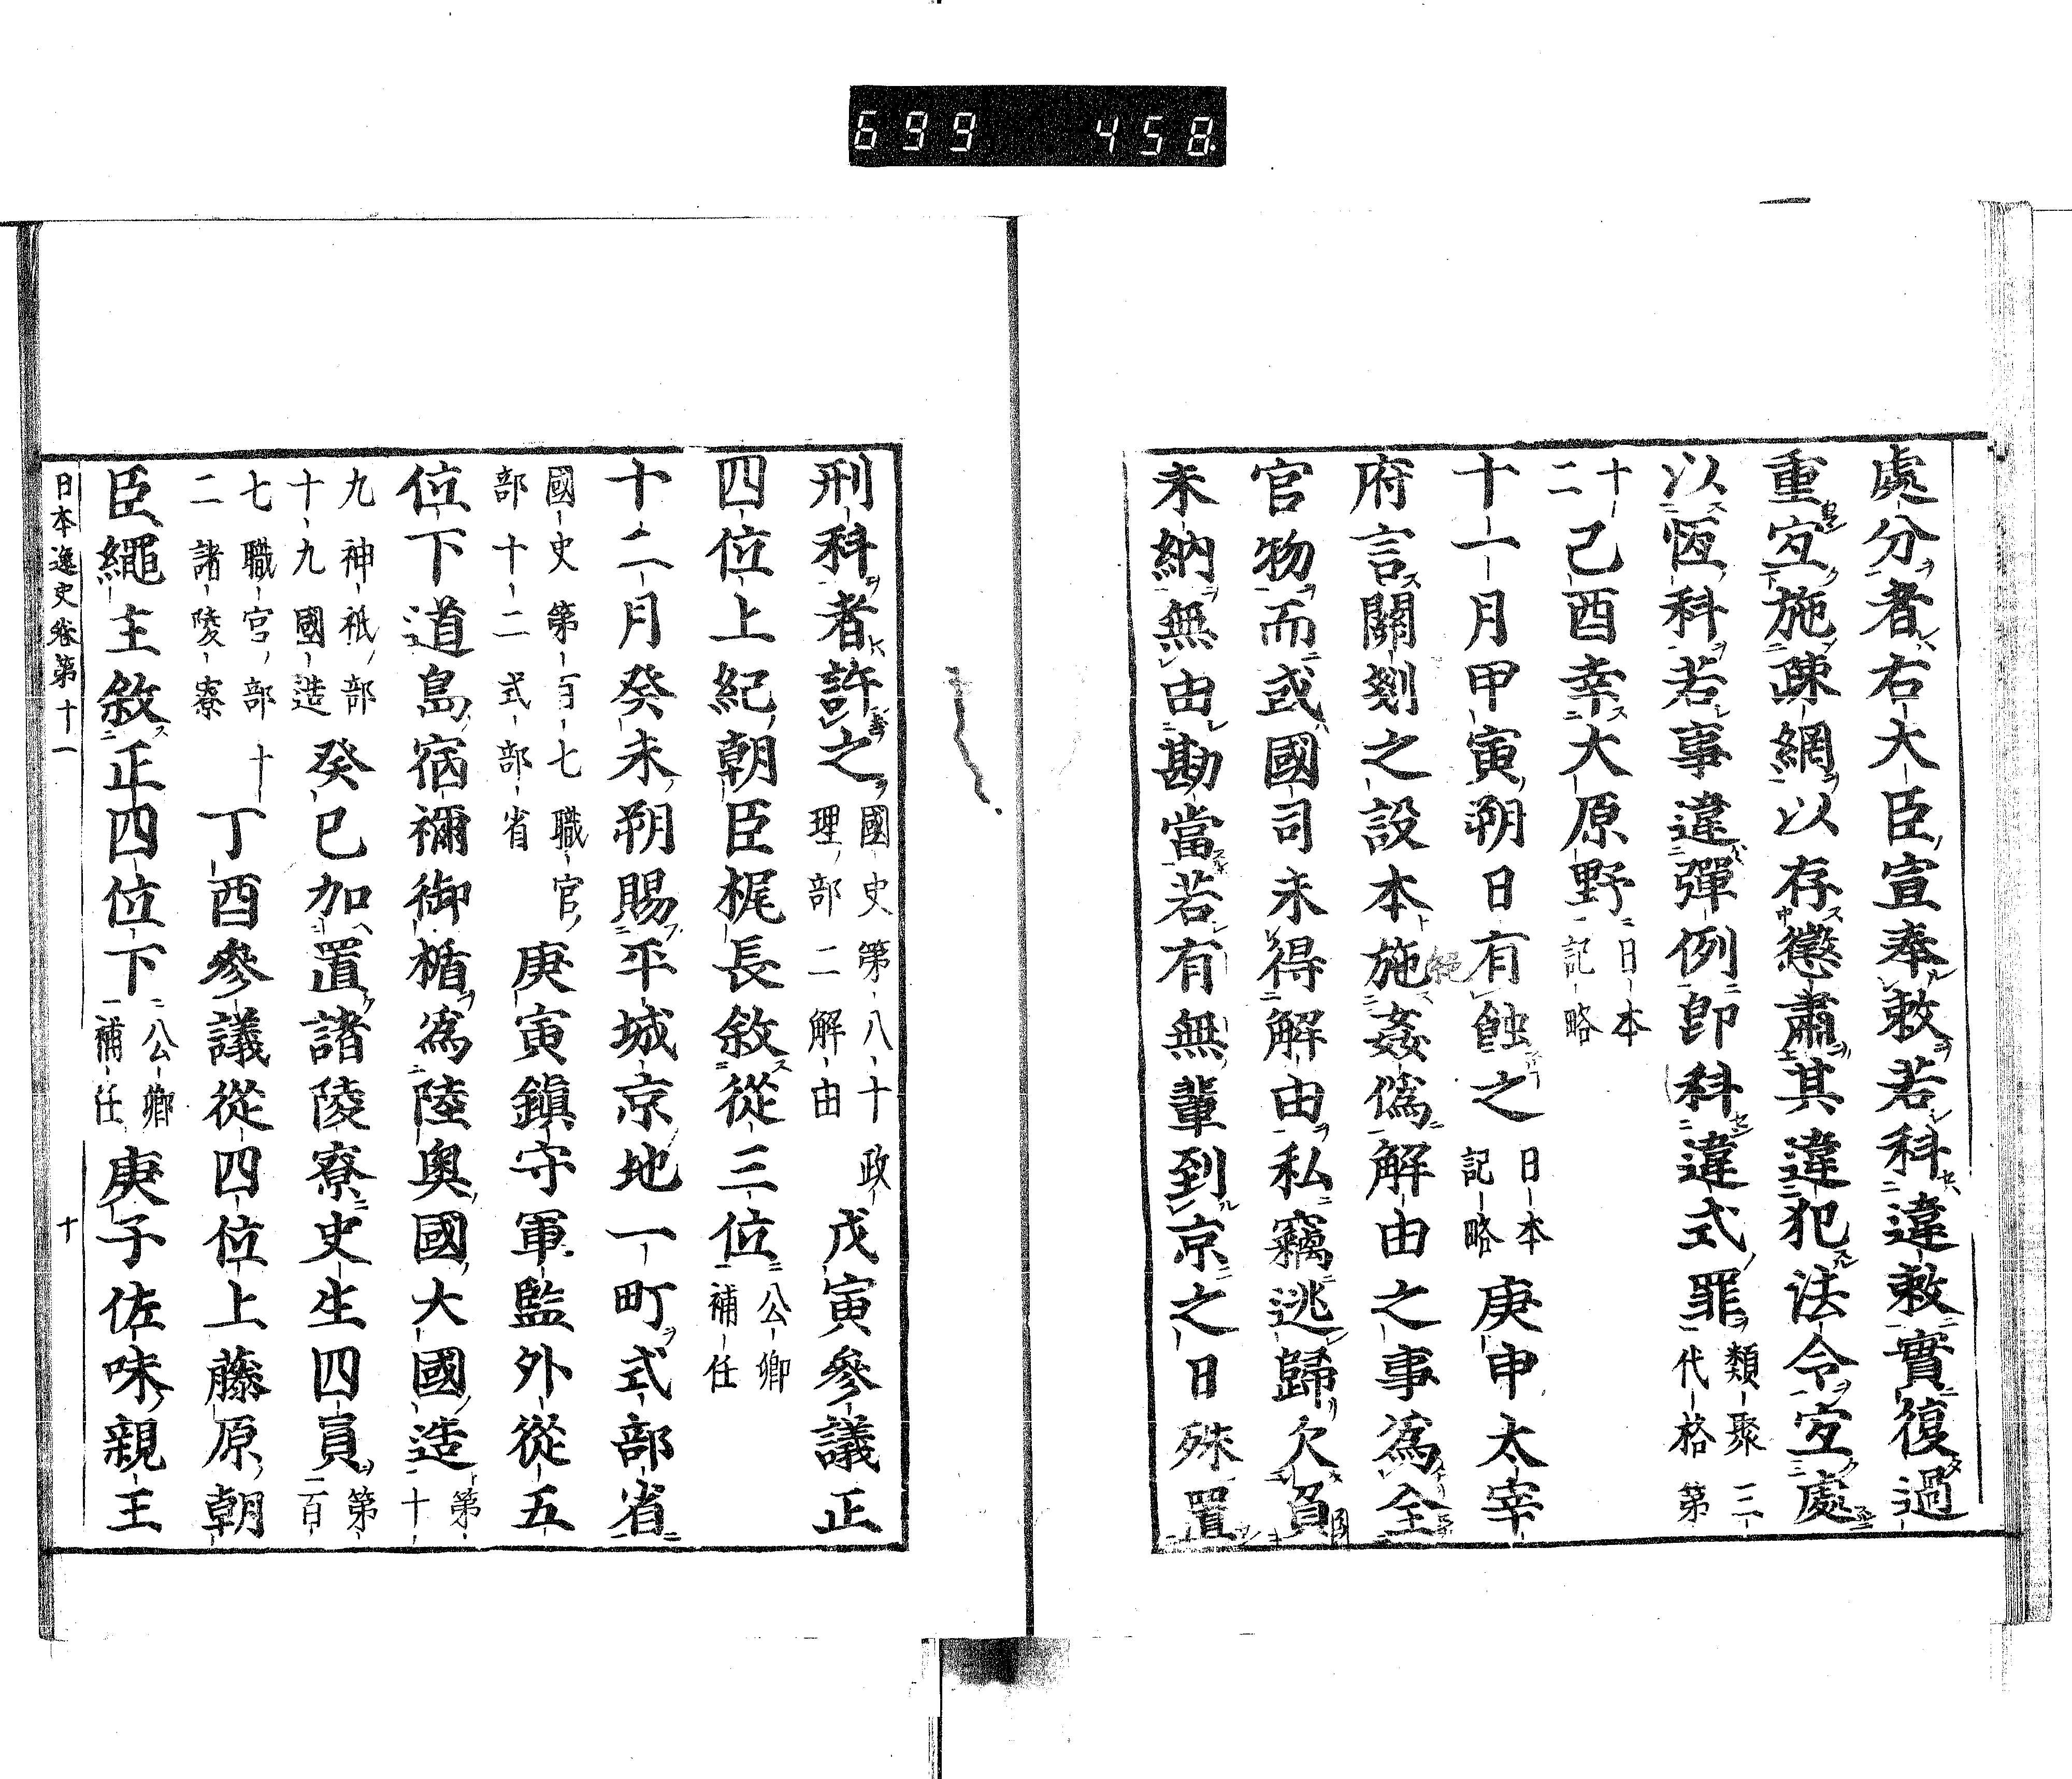 699 458
處分者右大臣宣奉敕若科違敕實復過
重宜施疎網以存懲肅其違犯法令宜處
以恆科若事違彈例即科違式罪類聚三代格第
十二己酉幸大原野日本記略
十一月甲寅朔日有蝕之日本記略庚申太宰
府言關剗之設本施姦僞解由之事爲全
官物而或國司未得解由私竊逃歸欠負
未納無由勘當若有無輩到京之日殊置
刑科者許之國史第八十政理部二解由戊寅參議正
四位上紀朝臣梶長敘從三位公卿補任
十二月癸未朔賜平城京地一町式部省
國史第百七職官部十二式部省庚寅鎭守軍監外從五
位下道島宿禰御楯爲陸奧國大國造第十
九神祇部十九國造癸巳加置諸陵寮史生四員第百
七職官部十二諸陵寮丁酉參議從四位上藤原朝
臣繩主敘正四位下公卿補任庚子佐味親王
日本逸史卷第十一 十